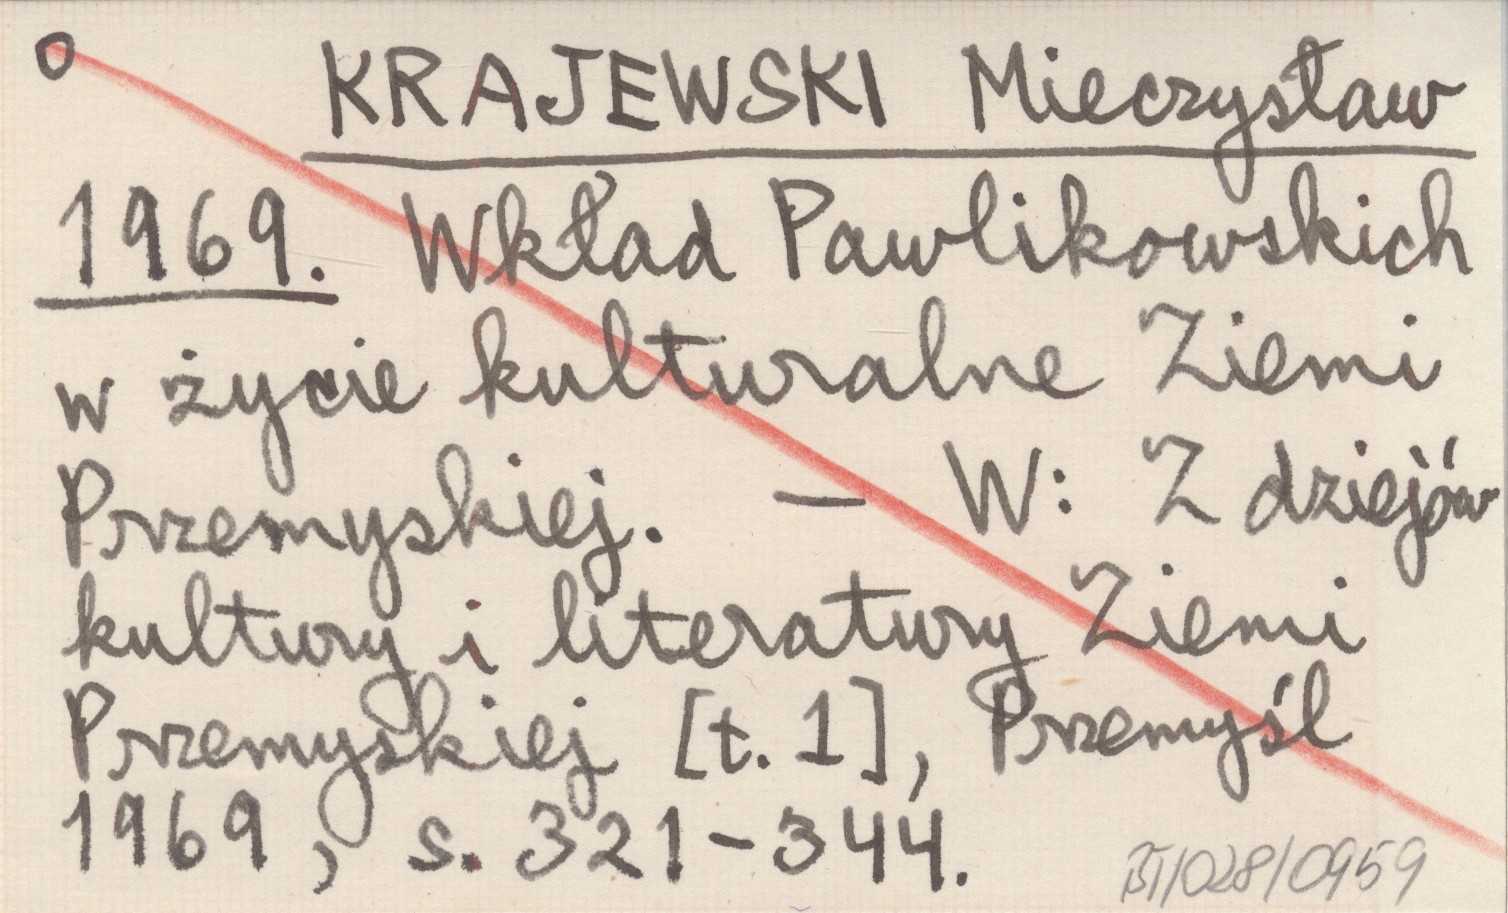 KRAJEWSKI Mieczysław
1969. Wkład Pawlikowskich
w życie kulturalne Ziemi
Przemyskiej. — W: Z dziejów
kultury i literatury Ziemi
Przemyskiej [t. 1], Przemyśl
1969, s. 321-344.
BT/028/0959